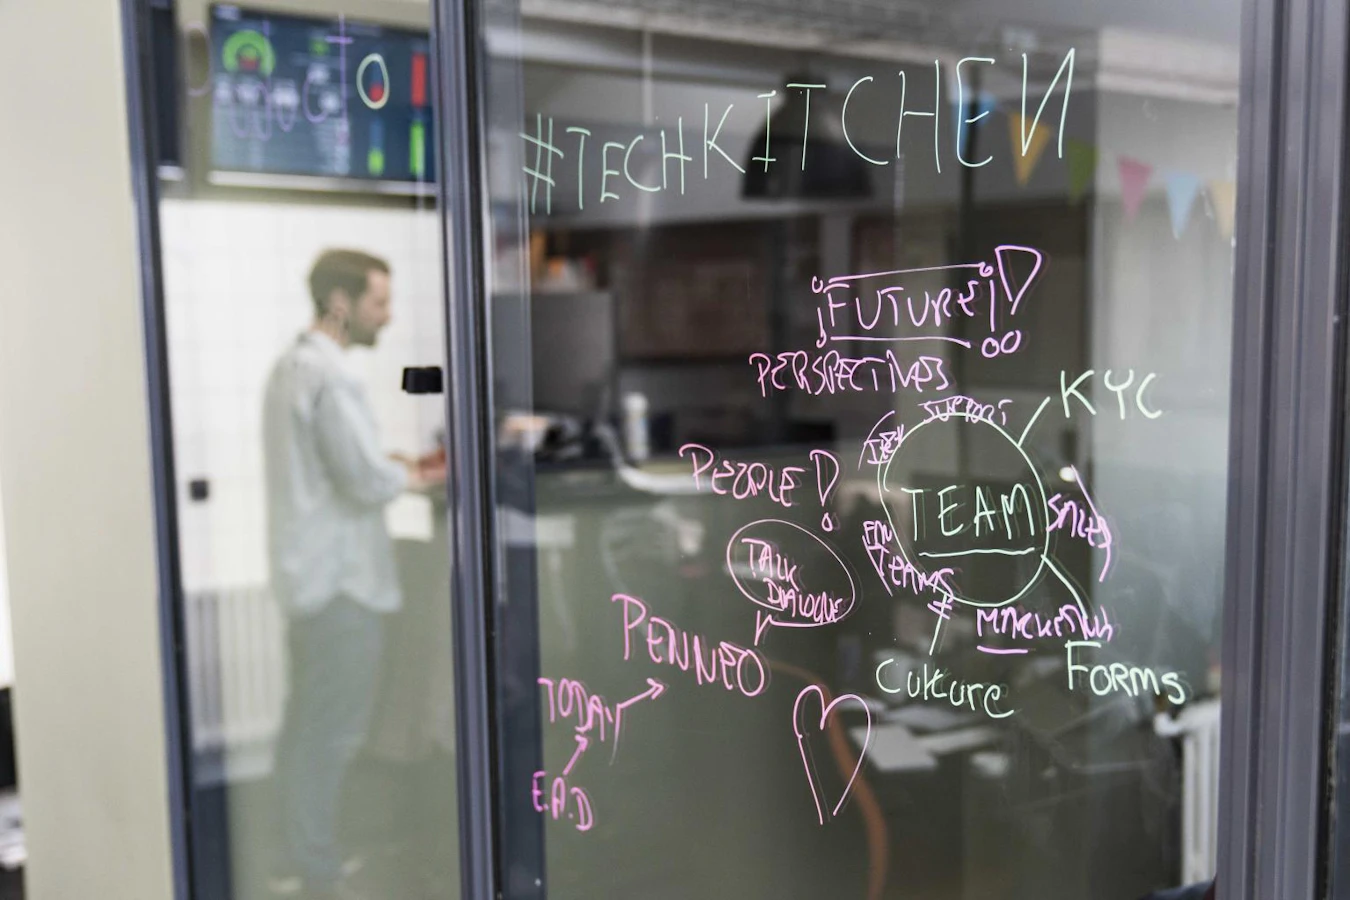 #TECHKITCHEN
¡FUTURE!
PERSPECTIVES
SUPPORT
KYC
PEOPLE!
TEAM
SALES
TALK
DIALOGUE
TEAMS
MARKETING
PENNEO
Culture
FORMS
TODAY
E.A.D